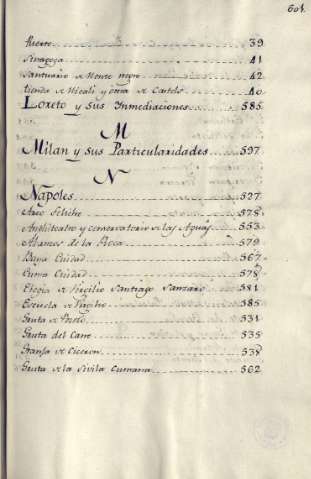 604.
Puerto 39
Sinagoga 41
Santuario de Monte negro 42
tienda de Micali y otra de Castelo 40
Loreto y sus Inmediaciones 585
M
Milan y sus Particularidades 597
N
Nápoles 527
Arco Felichе 575
Amphiteatro y conservatorio de las Aguas 553
de la Roca 579
Baya Ciudad 567
Cuma Ciudad 575
Elogia de Virgilio Santiago Sanzaro 581
Escuela de Virgilio 585
Gruta de 531
Gruta del Cane 535
Granja de Ciceron 538
Gruta de la Sivila Cumana 562